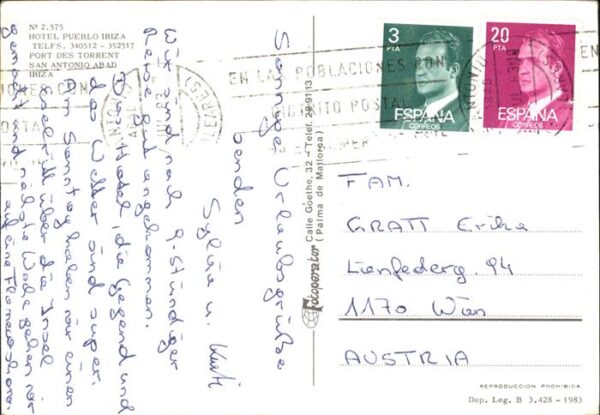 Nº 2.575
HOTEL PUEBLO IBIZA
TELFS. 340512 - 352517
PORT DES TORRENT
SAN ANTONIO ABAD
IBIZA
3
PTA
ESPAÑA
CORREOS
20
PTA
ESPAÑA
CORREOS
EN LA POBLACIONES CON
POSTAL
Sonnige Urlaubsgrüße
senden
Sylvia u. Kurti
Wir sind nach 9-stündiger
Reise gut angekommen.
Das Hotel, die Gegend und
das Wetter sind super.
Am Sonntag haben wir einen
über die Insel
gemacht und nächste Woche gehen wir
auf eine Flamencoshow.
Fotoperator
Calle Goethe, 32 - (Telef. 28 91 13)
(Palma de Mallorca)
FAM.
GRATT Erika
Lienfelderg. 94
1170 Wien
AUSTRIA
REPRODUCCION PROHIBIDA
Dep. Leg. B 3.428 - 1983